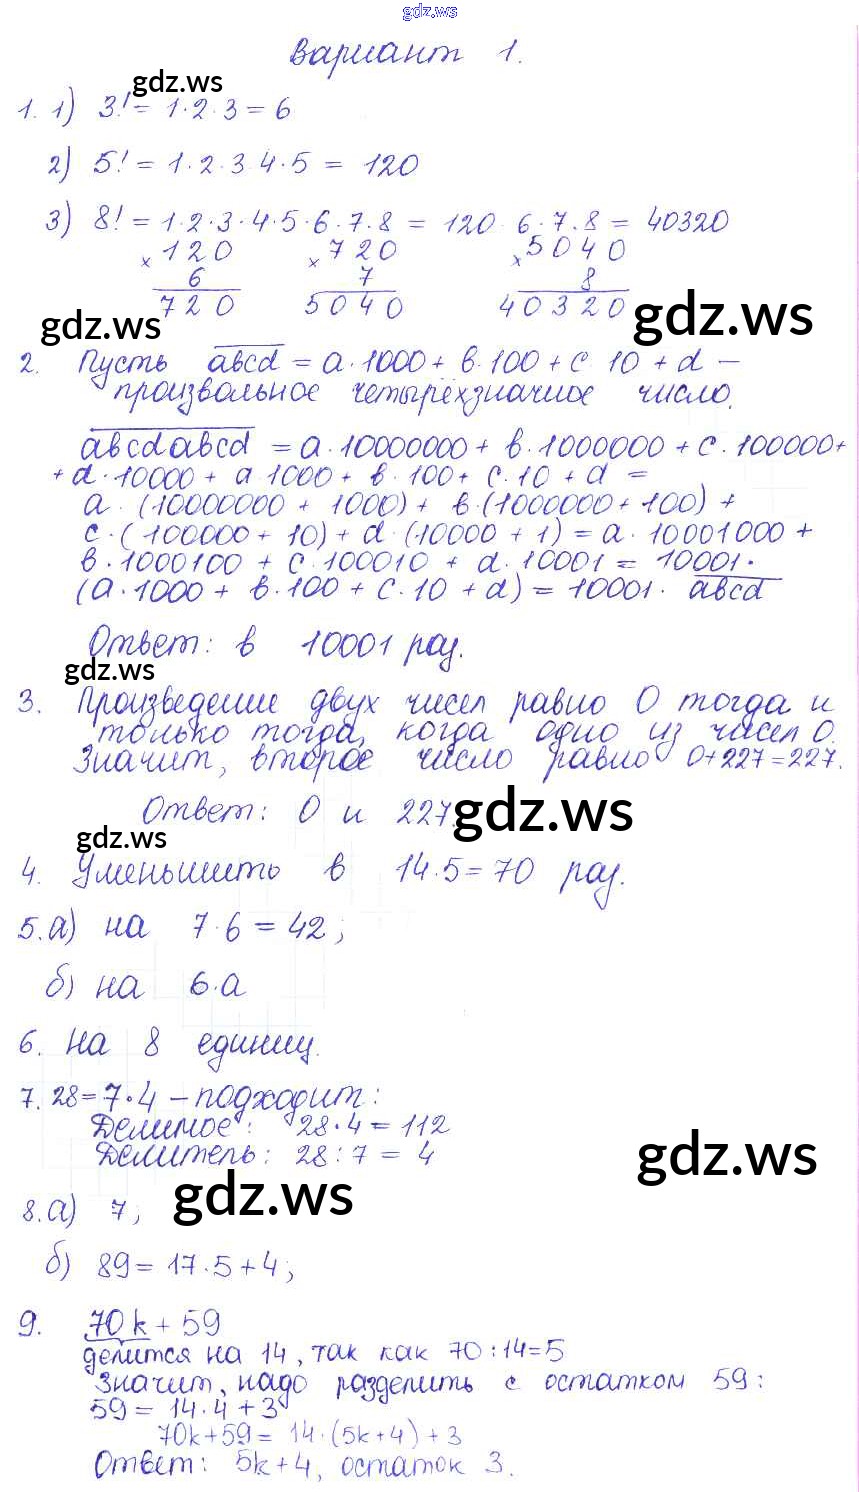 gdz.ws
Вариант 1.
gdz.ws
1. 1) 3! = 1·2·3 = 6
2) 5! = 1·2·3 4·5 = 120
3) 8! = 1·2·3·4·5·6·7·8 = 120 6·7·8 = 40320
× 120 × 720 × 5040
6 7 8
720 5040 40320
gdz.ws gdz.ws
2. Пусть abcd = a·1000 + b·100 + c 10 + d –
произвольное четырёхзначное число.
abcdabcd = a·10000000 + b·1000000 + c·100000+
+ d·10000 + a 1000 + b·100 + c·10 + d =
a·(10000000 + 1000) + b·(1000000 + 100) +
c·(100000 + 10) + d·(10000 + 1) = a·10001000 +
b·1000100 + c·100010 + d·10001 = 10001·
(a·1000 + b·100 + c·10 + d) = 10001· abcd
Ответ: в 10001 раз.
gdz.ws
3. Произведение двух чисел равно 0 тогда и
только тогда, когда одно из чисел 0.
Значит, второе число равно 0+227=227.
Ответ: 0 и 227.
gdz.ws
gdz.ws
4. Уменьшить в 14·5=70 раз.
5. а) на 7·6 = 42;
б) на 6·а
6. На 8 единиц.
7. 28=7·4 – подходит:
Делимое: 28·4 = 112
Делитель: 28:7 = 4
gdz.ws
gdz.ws
8. а) 7;
б) 89 = 17·5+4;
9. 70k + 59
делится на 14, так как 70:14=5
Значит, надо разделить с остатком 59:
59 = 14·4 + 3
70k+59 = 14·(5k+4)+3
Ответ: 5k+4, остаток 3.